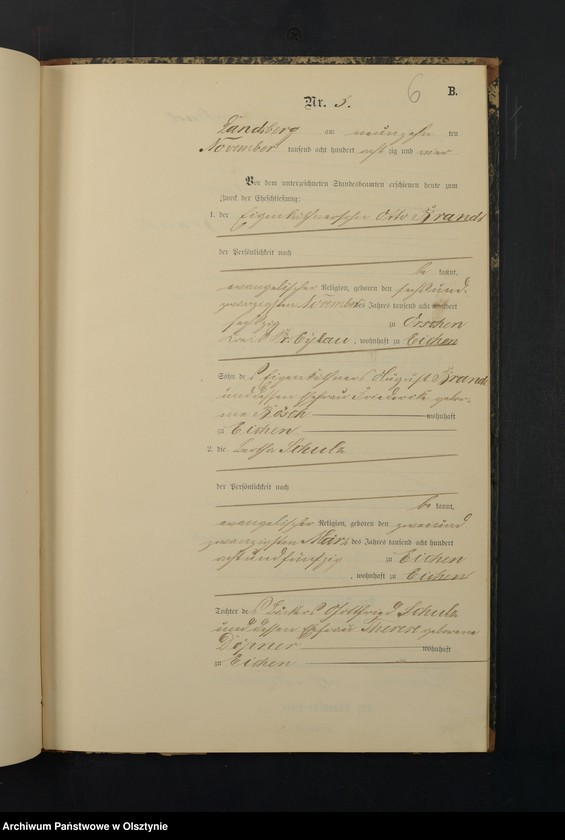 6
B.
Nr. 3.
Landsberg am neunzehn ten
November tausend acht hundert acht zig und vier
Vor dem unterzeichneten Standesbeamten erschienen heute zum
Zweck der Eheschließung:
1. der Eigenkäthnersohn Otto Brandt
der Persönlichkeit nach
be kannt,
evangelischer Religion, geboren den sechsund-
zwanzigsten November des Jahres tausend acht hundert
sechzig zu Orschen
Kreis Pr. Eylau, wohnhaft zu Eichen
Sohn des Eigenkäthners August Brandt
und dessen Ehefrau Friederike gebor-
ne Bösch wohnhaft
zu Eichen
2. die Bertha Schulz
der Persönlichkeit nach
be kannt,
evangelischer Religion, geboren den zweiund
zwanzigsten März des Jahres tausend acht hundert
achtundfünfzig zu Eichen
, wohnhaft zu Eichen
Tochter des Gottfried Schulz
und dessen Ehefrau Therese geborene
Döpner wohnhaft
zu Eichen
Archiwum Państwowe w Olsztynie